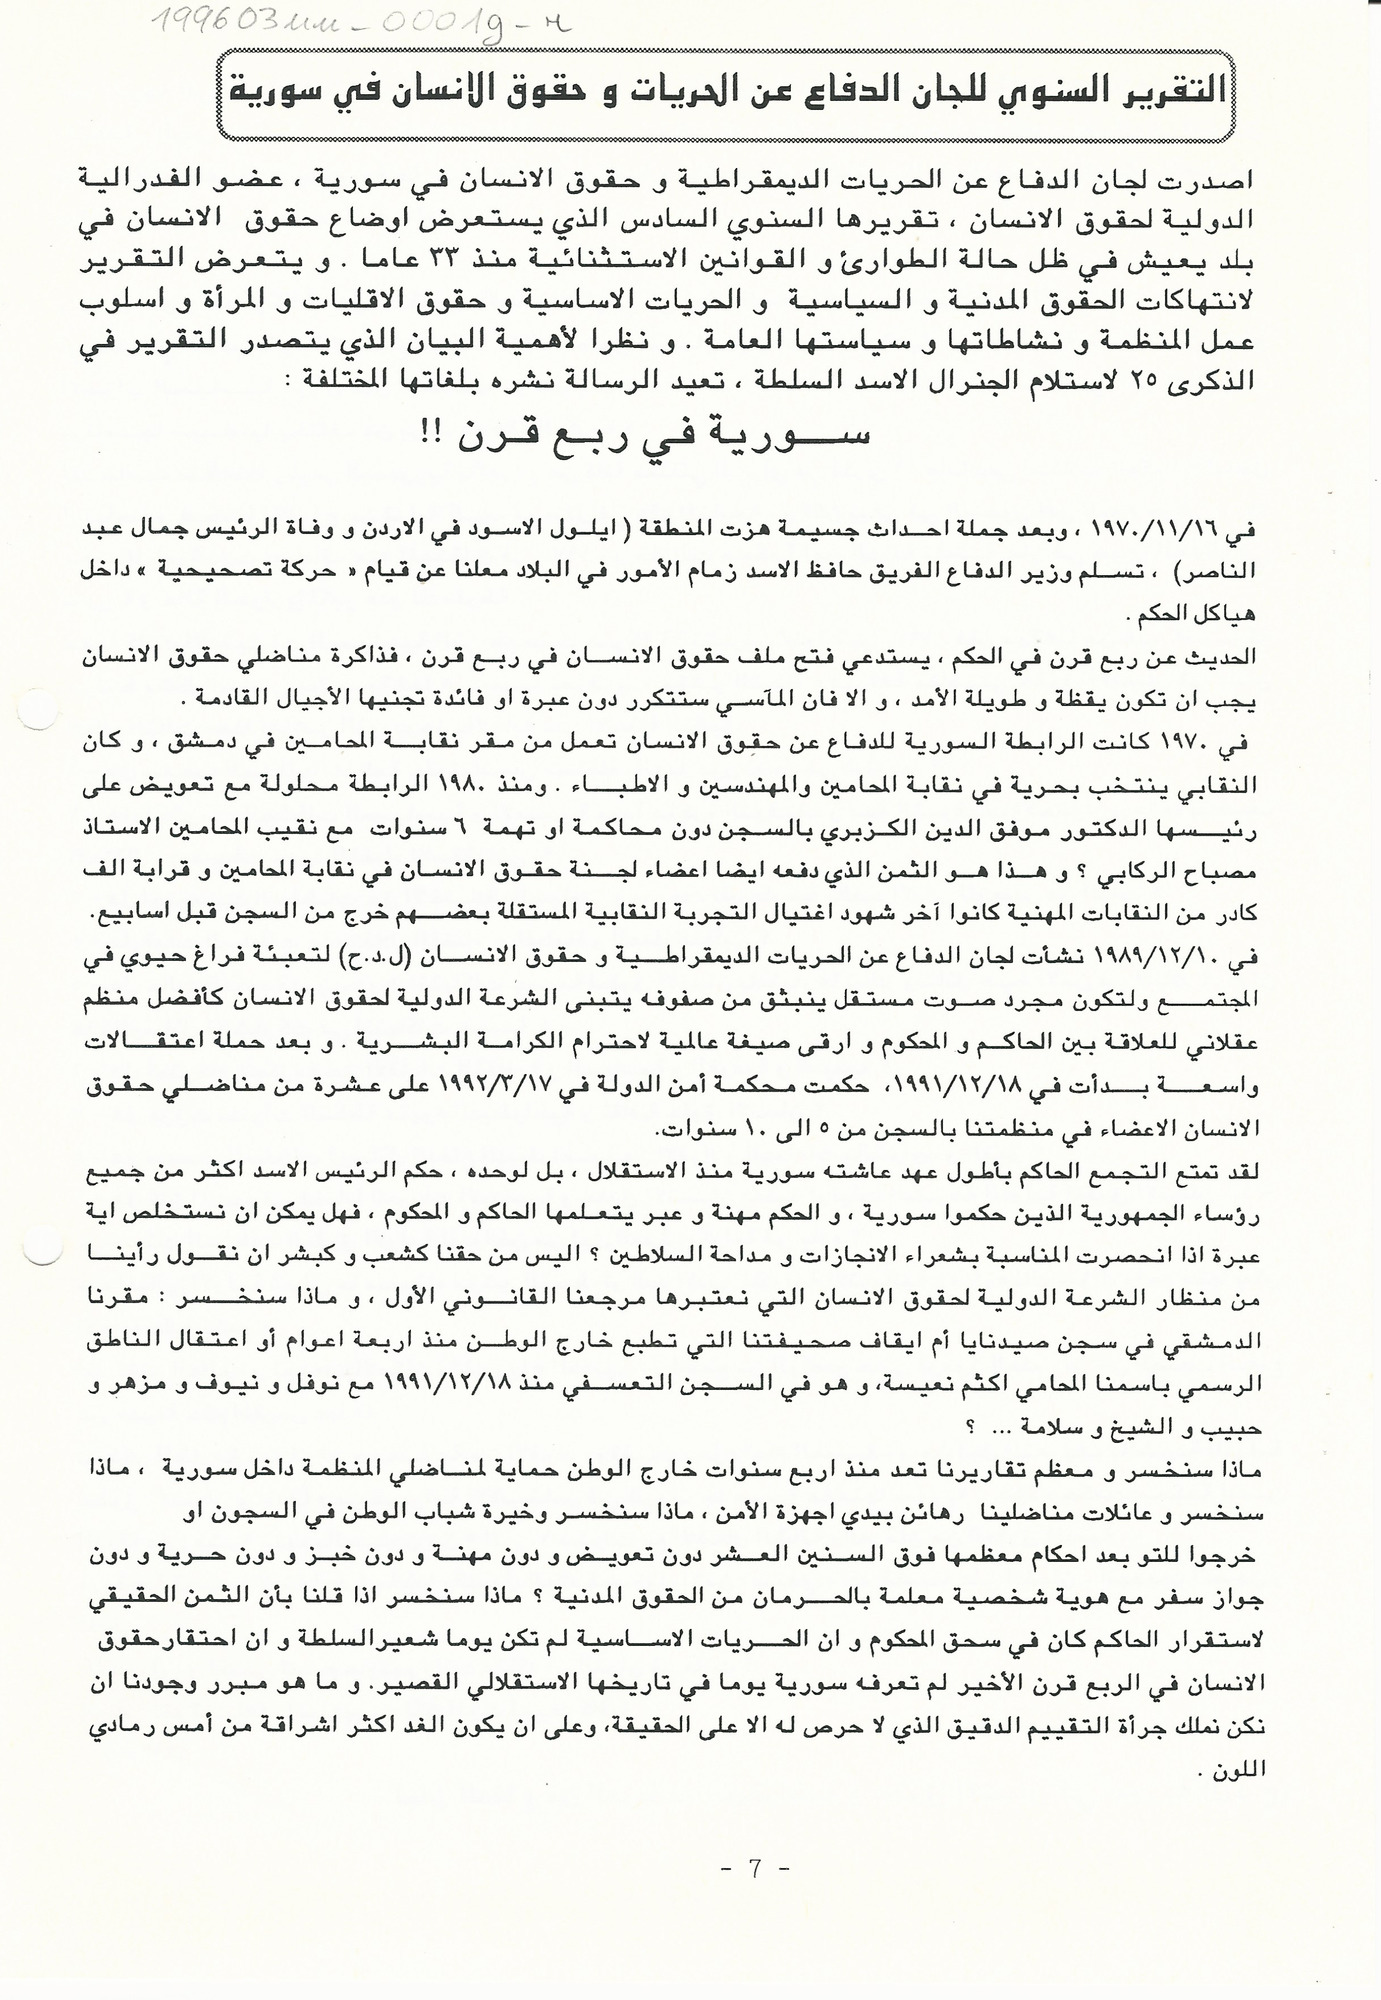 199603
التقرير السنوي للجان الدفاع عن الحريات و حقوق الانسان في سورية
اصدرت لجان الدفاع عن الحريات الديمقراطية و حقوق الانسان في سورية ، عضو الفدرالية
الدولية لحقوق الانسان ، تقريرها السنوي السادس الذي يستعرض اوضاع حقوق الانسان في
بلد يعيش في ظل حالة الطوارئ و القوانين الاستثنائية منذ ٣٣ عاما . و يتعرض التقرير
لانتهاكات الحقوق المدنية و السياسية و الحريات الاساسية و حقوق الاقليات و المرأة و اسلوب
عمل المنظمة و نشاطاتها و سياستها العامة . و نظرا لأهمية البيان الذي يتصدر التقرير في
الذكرى ٢٥ لاستلام الجنرال الاسد السلطة ، تعيد الرسالة نشره بلغاتها المختلفة :
سورية في ربع قرن !!
في ١٩٧٠/١١/١٦ ، وبعد جملة احداث جسيمة هزت المنطقة ( ايلول الاسود في الاردن و وفاة الرئيس جمال عبد
الناصر) ، تسلم وزير الدفاع الفريق حافظ الاسد زمام الأمور في البلاد معلنا عن قيام « حركة تصحيحية » داخل
هياكل الحكم .
الحديث عن ربع قرن في الحكم ، يستدعي فتح ملف حقوق الانسان في ربع قرن ، فذاكرة مناضلي حقوق الانسان
يجب ان تكون يقظة و طويلة الأمد ، و الا فان المآسي ستتكرر دون عبرة او فائدة تجنيها الأجيال القادمة .
في ١٩٧٠ كانت الرابطة السورية للدفاع عن حقوق الانسان تعمل من مقر نقابة المحامين في دمشق ، و كان
النقابي ينتخب بحرية في نقابة المحامين والمهندسين و الاطباء . ومنذ ١٩٨٠ الرابطة محلولة مع تعويض على
رئيسها الدكتور موفق الدين الكزبري بالسجن دون محاكمة او تهمة ٦ سنوات مع نقيب المحامين الاستاذ
مصباح الركابي ؟ و هذا هو الثمن الذي دفعه ايضا اعضاء لجنة حقوق الانسان في نقابة المحامين و قرابة الف
كادر من النقابات المهنية كانوا آخر شهود اغتيال التجربة النقابية المستقلة بعضهم خرج من السجن قبل اسابيع.
في ١٩٨٩/١٢/١٠ نشأت لجان الدفاع عن الحريات الديمقراطية و حقوق الانسان (ل.د.ح) لتعبئة فراغ حيوي في
المجتمع ولتكون مجرد صوت مستقل ينبثق من صفوفه يتبنى الشرعة الدولية لحقوق الانسان كأفضل منظم
عقلاني للعلاقة بين الحاكم و المحكوم و ارقى صيغة عالمية لاحترام الكرامة البشرية . و بعد حملة اعتقالات
واسعة بدأت في ١٩٩١/١٢/١٨، حكمت محكمة أمن الدولة في ١٩٩٢/٣/١٧ على عشرة من مناضلي حقوق
الانسان الاعضاء في منظمتنا بالسجن من ٥ الى ١٠ سنوات.
لقد تمتع التجمع الحاكم بأطول عهد عاشته سورية منذ الاستقلال ، بل لوحده ، حكم الرئيس الاسد اكثر من جميع
رؤساء الجمهورية الذين حكموا سورية ، و الحكم مهنة و عبر يتعلمها الحاكم و المحكوم ، فهل يمكن ان نستخلص اية
عبرة اذا انحصرت المناسبة بشعراء الانجازات و مداحة السلاطين ؟ اليس من حقنا كشعب و كبشر ان نقول رأينا
من منظار الشرعة الدولية لحقوق الانسان التي نعتبرها مرجعنا القانوني الأول ، و ماذا سنخسر : مقرنا
الدمشقي في سجن صيدنايا أم ايقاف صحيفتنا التي تطبع خارج الوطن منذ اربعة اعوام أو اعتقال الناطق
الرسمي باسمنا المحامي اكثم نعيسة، و هو في السجن التعسفي منذ ١٩٩١/١٢/١٨ مع نوفل و نيوف و مزهر و
حبيب و الشيخ و سلامة ... ؟
ماذا سنخسر و معظم تقاريرنا تعد منذ اربع سنوات خارج الوطن حماية لمناضلي المنظمة داخل سورية ، ماذا
سنخسر و عائلات مناضلينا رهائن بيدي اجهزة الأمن ، ماذا سنخسر وخيرة شباب الوطن في السجون او
خرجوا للتو بعد احكام معظمها فوق السنين العشر دون تعويض و دون مهنة و دون خبز و دون حرية و دون
جواز سفر مع هوية شخصية معلمة بالحرمان من الحقوق المدنية ؟ ماذا سنخسر اذا قلنا بأن الثمن الحقيقي
لاستقرار الحاكم كان في سحق المحكوم و ان الحريات الاساسية لم تكن يوما شعيرالسلطة و ان احتقارحقوق
الانسان في الربع قرن الأخير لم تعرفه سورية يوما في تاريخها الاستقلالي القصير. و ما هو مبرر وجودنا ان
نكن نملك جرأة التقييم الدقيق الذي لا حرص له الا على الحقيقة، وعلى ان يكون الغد اكثر اشراقة من أمس رمادي
اللون .
- 7 -